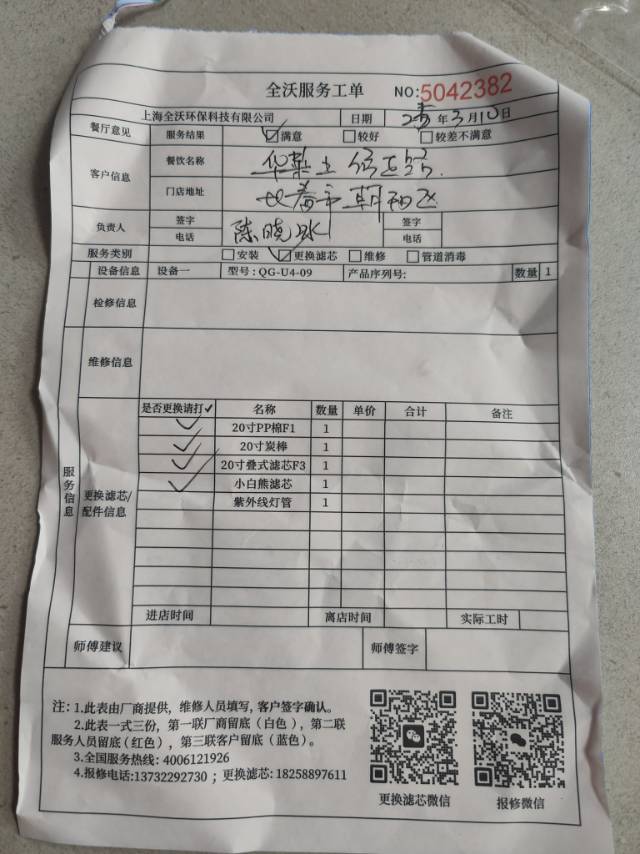 全沃服务工单 NO:5042382
上海全沃环保科技有限公司 日期 年3月10日
餐厅意见 服务结果 ☑满意 □较好 □较差不满意
客户信息 餐饮名称
门店地址 长春市朝阳区
负责人 签字 陈晓冰 签字
电话 电话
服务类别 □安装 ☑更换滤芯 □维修 □管道消毒
设备信息 设备一 型号:QG-U4-09 产品序列号: 数量 1
检修信息
维修信息
服务信息
更换滤芯/配件信息
是否更换请打✓ 名称 数量 单价 合计 备注
✓ 20寸PP棉F1 1
✓ 20寸炭棒 1
✓ 20寸叠式滤芯F3 1
✓ 小白熊滤芯 1
紫外线灯管 1
进店时间 离店时间 实际工时
师傅建议 师傅签字
注:1.此表由厂商提供,维修人员填写,客户签字确认。
2.此表一式三份,第一联厂商留底(白色),第二联
服务人员留底(红色),第三联客户留底(蓝色)。
3.全国服务热线:4006121926
4.报修电话:13732292730;更换滤芯:18258897611
更换滤芯微信 报修微信